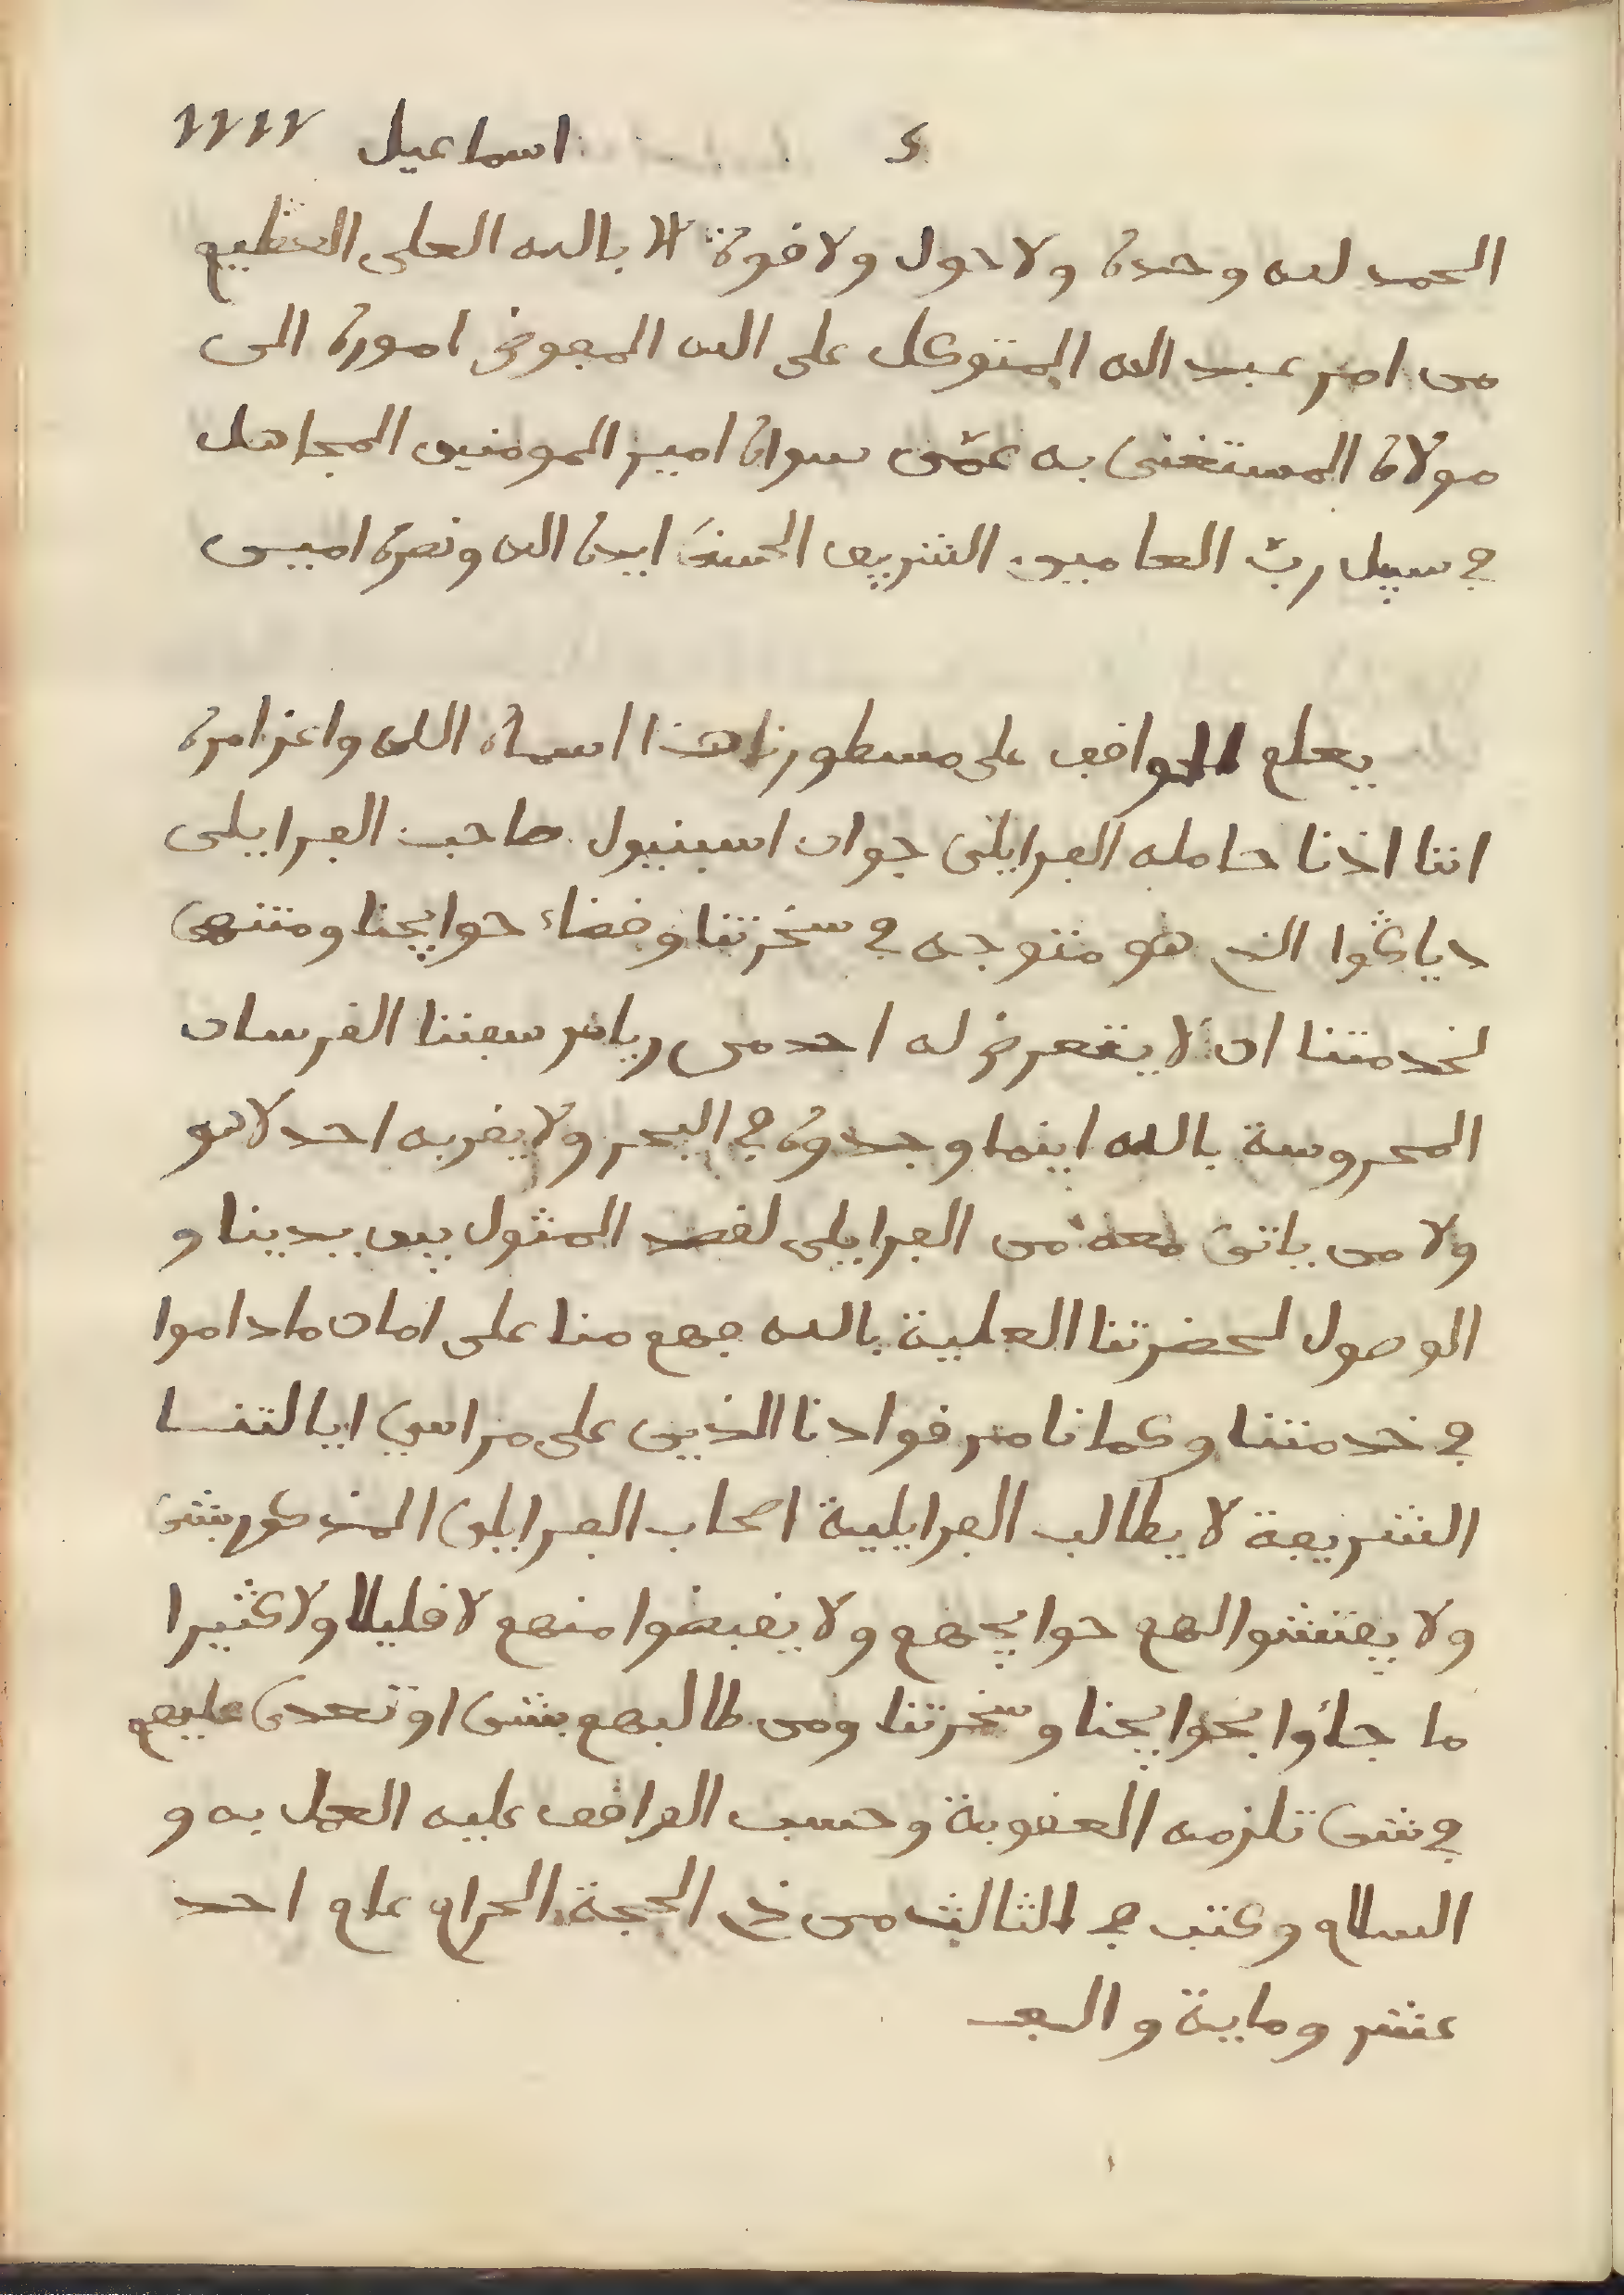 اسماعيل ١١١٢
الحمد لله وحده ولا حول ولا قوة الا بالله العلى العظيم
من امر عبد الله المتوكل على الله المفوض اموره الى
مولاه المستغنى به عمّن سواه امير المومنين المجاهد
في سبيل ربّ العالمين الشريف الحسنى ايده الله ونصره امين
يعلم الواقف على مسطورنا هذا اسماه الله واعز امره
اننا اذنا حامله الفرايلى جوان اسبنيول صاحب الفرايلى
دياكوا الذي هو متوجه في سخرتنا وقضاء حوايجنا ومنتهى
لخدمتنا ان لا يتعرض له احد من رياس سفننا القرسان
المحروسة بالله اينما وجدوه في البحر ولا يقربه احد لا هو
ولا من ياتى معه من الفرايلى لقصد المثول بين يدينا و
الوصول لحضرتنا العلية بالله فهم منا على امان ما داموا
في خدمتنا وكما نامر قوادنا الذين على مراسي ايالتنا
الشريفة لا يطالب الفرايلية اصحاب الفرايلى المذكور بشى
ولا يفتشوا لهم حوايجهم ولا يقبضوا منهم لا قليلا ولا كثيرا
ما جاوا بحوايجنا وسخرتنا ومن طالبهم بشى او تعدى عليهم
في شى تلزمه العقوبة وحسب الواقف عليه العمل به و
السلام وكتب في الثالث من ذي الحجة الحرام عام احد
عشر وماية والف